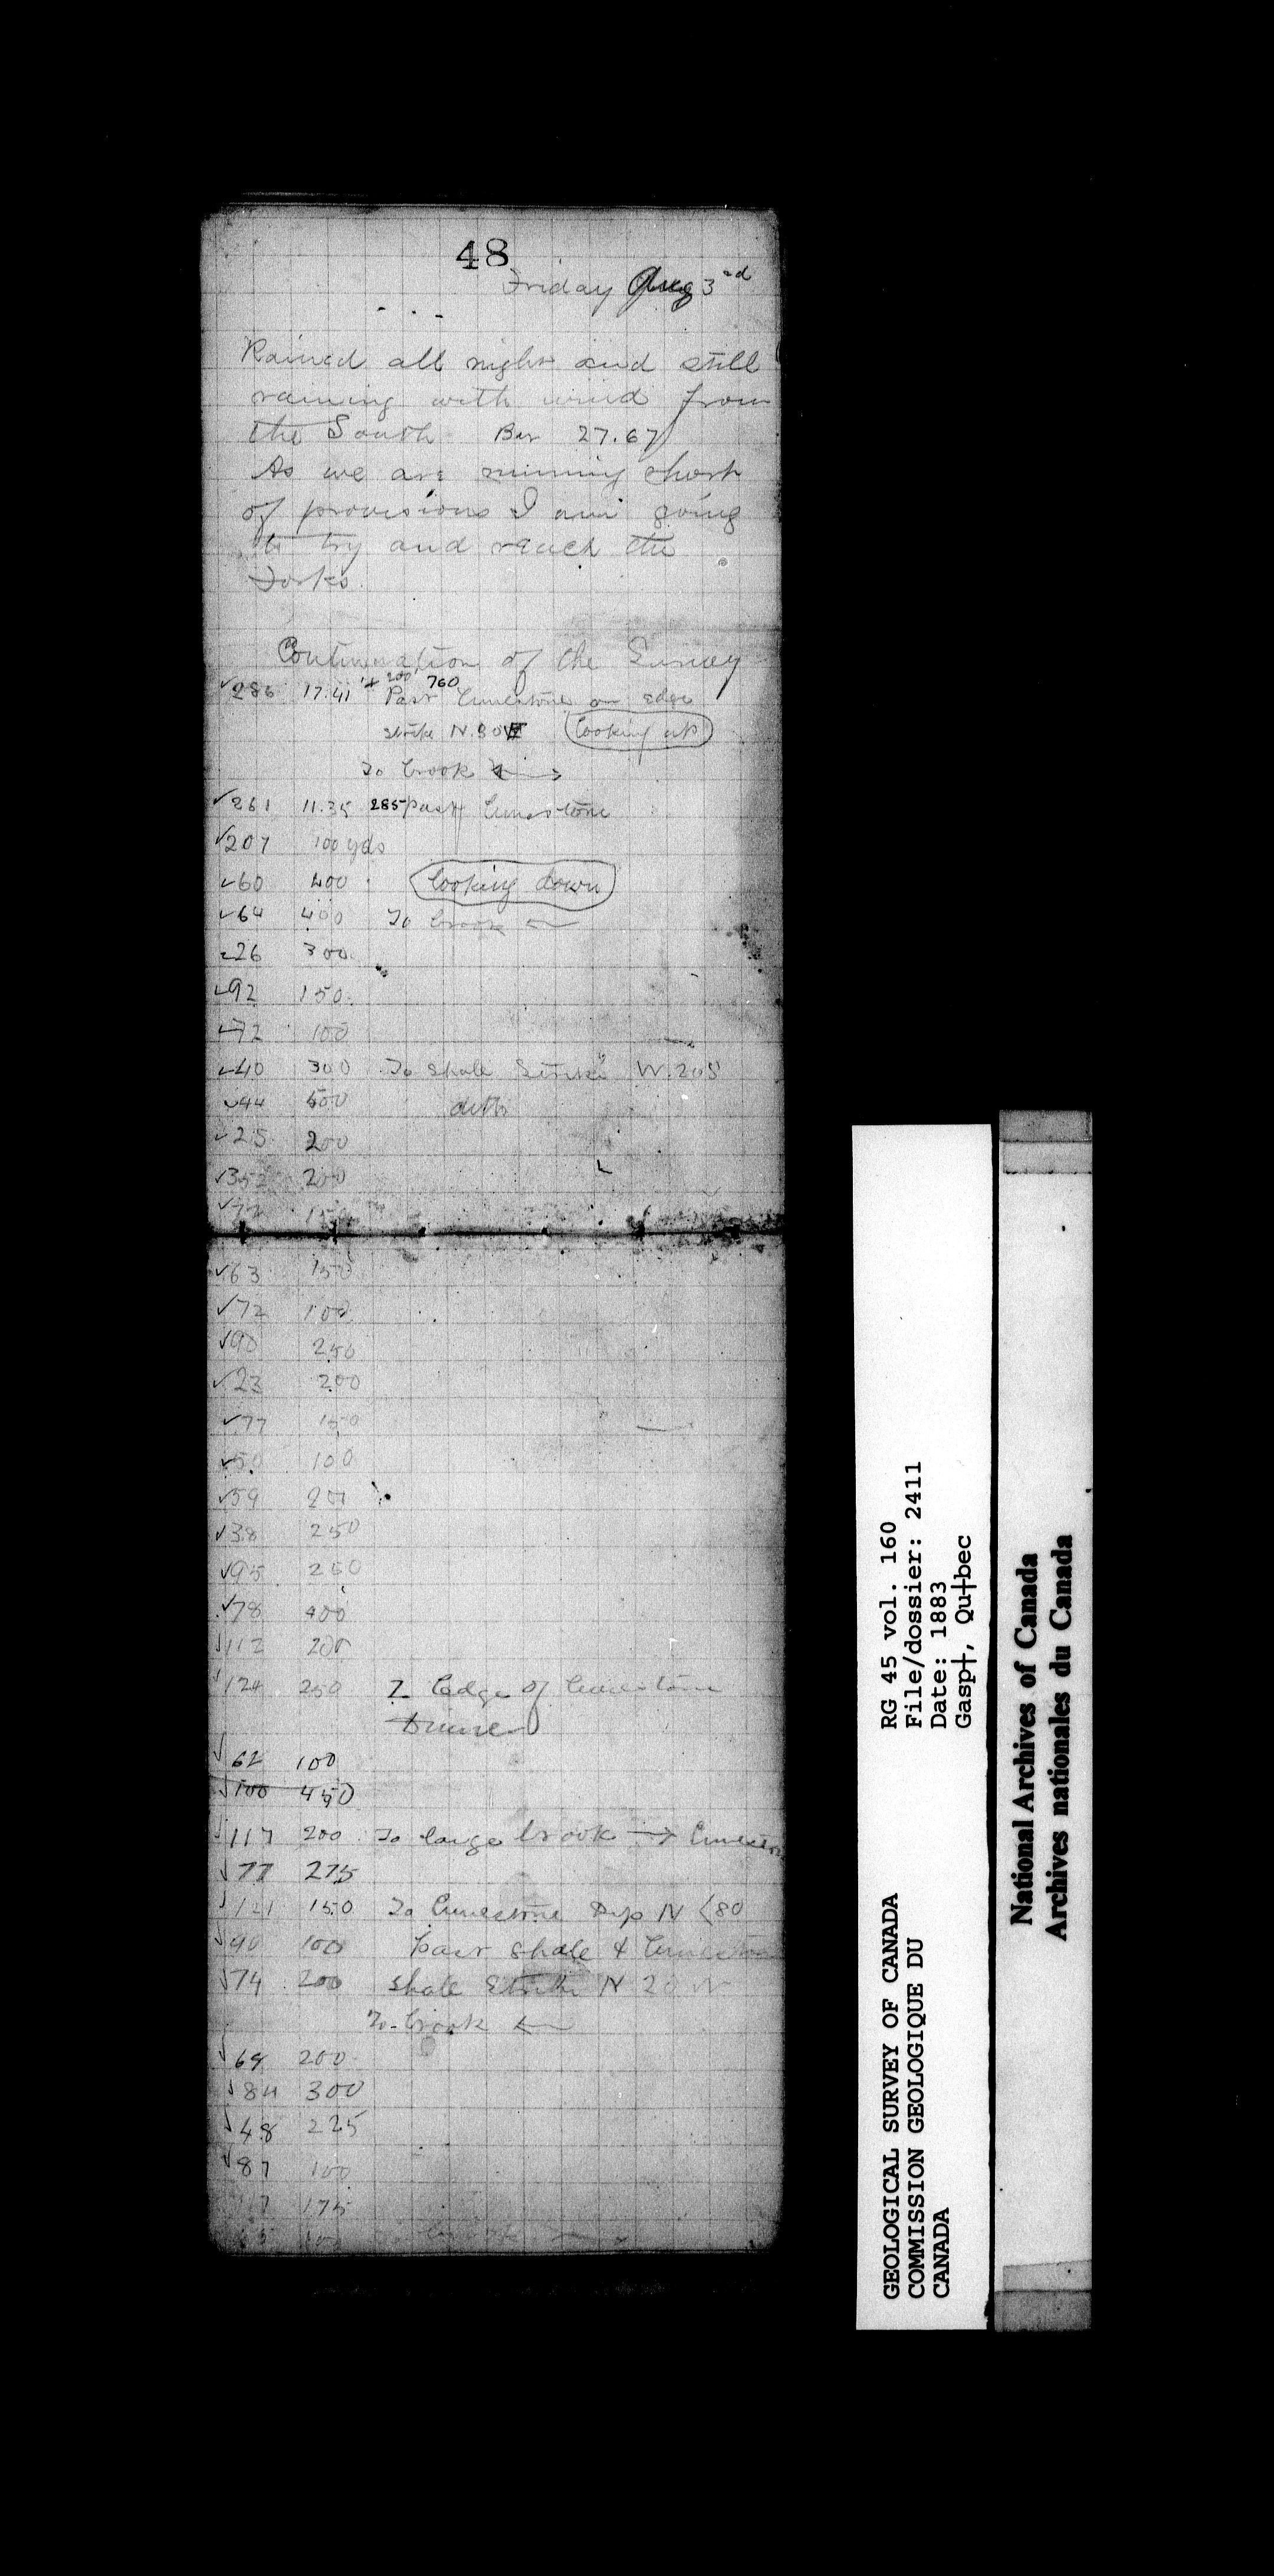 48
Friday Aug 3rd
Rained all night and still
raining with wind from
the South Bar 27.67
As we are running short
of provisions I am going
to try and reach the
Forks.
Continuation of the Survey
✓286 17.41 + 200' 760 Past limestone on edge
strike N.80W looking up
To brook
✓261 11.35 285 past limestone
✓207 100 yds
✓60 400 looking down
✓64 400 To brook ←
✓26 300
✓92 150
✓72 100
✓40 300 To shale Strike W.20S
✓44 500 ditto
✓25 200
✓352 200
✓77 150
✓63 150
✓72 100
✓90 250
✓23 200
✓77 150
✓50 100
✓59 200
✓38 250
✓95 250
✓78 400
✓112 200
✓124 250 To ledge of limestone
Dinner
✓62 100
✓100 450
✓117 200 To large brook → limestone
✓77 275
✓121 150 To limestone Dip N <80
✓90 100 past shale & limestone
✓74 200 shale Strike N 20 W
To brook ←
✓69 200
✓84 300
✓48 225
✓87 100
175
brook
GEOLOGICAL SURVEY OF CANADA
COMMISSION GEOLOGIQUE DU
CANADA
RG 45 vol. 160
File/dossier: 2411
Date: 1883
Gasp†, Qu†bec
National Archives of Canada
Archives nationales du Canada